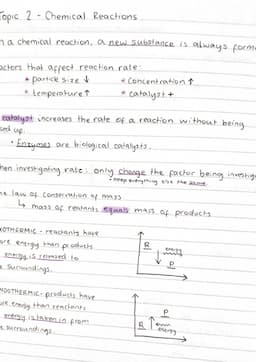 Topic 2 - Chemical Reactions
in a chemical reaction, a new substance is always forme
actors that affect reaction rate:
* particle size ↓ * concentration ↑
* temperature ↑ * catalyst +
catalyst increases the rate of a reaction without being
sed up.
• Enzymes are biological catalysts.
hen investigating rate: only change the factor being investig
keep everything else the same.
he law of conservation of mass
↳ mass of reactants equals mass of products
XOTHERMIC - reactants have
ore energy than products
energy is released to
e surroundings.
R
energy
P
NDOTHERMIC - products have
ore energy than reactants
energy is taken in from
e surroundings
P
R
energy